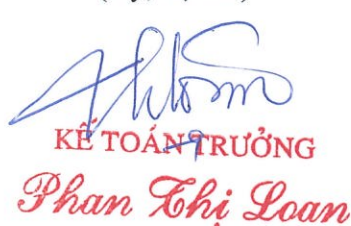 KẾ TOÁN TRƯỞNG
Phan Thị Loan